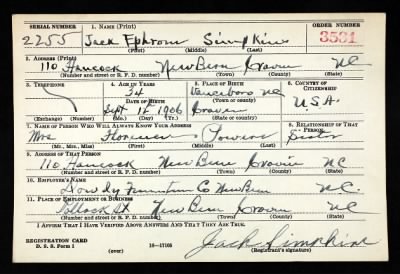 SERIAL NUMBER 1. NAME (Print) ORDER NUMBER
2255 Jack Ephrom Simpkins 3531
(First) (Middle) (Last)
2. ADDRESS (Print)
110 Hancock New Bern Craven NC
(Number and street or R. F. D. number) (Town) (County) (State)
3. TELEPHONE 4. AGE IN YEARS 5. PLACE OF BIRTH 6. COUNTRY OF CITIZENSHIP
34 Vanceboro NC
DATE OF BIRTH (Town or county)
Sept 1st 1906 Craven U.S.A.
(Exchange) (Number) (Mo.) (Day) (Yr.) (State or country)
7. NAME OF PERSON WHO WILL ALWAYS KNOW YOUR ADDRESS 8. RELATIONSHIP OF THAT PERSON
Mrs Florence Towers Sister
(Mr., Mrs., Miss) (First) (Middle) (Last)
9. ADDRESS OF THAT PERSON
110 Hancock New Bern Craven NC
(Number and street or R. F. D. number) (Town) (County) (State)
10. EMPLOYER'S NAME
Dowdy Furniture Co New Bern N.C.
11. PLACE OF EMPLOYMENT OR BUSINESS
Pollock St New Bern Craven NC
(Number and street or R. F. D. number) (Town) (County) (State)
I AFFIRM THAT I HAVE VERIFIED ABOVE ANSWERS AND THAT THEY ARE TRUE.
REGISTRATION CARD
D. S. S. Form 1 (over) 16—17105 Jack Simpkins
(Registrant's signature)